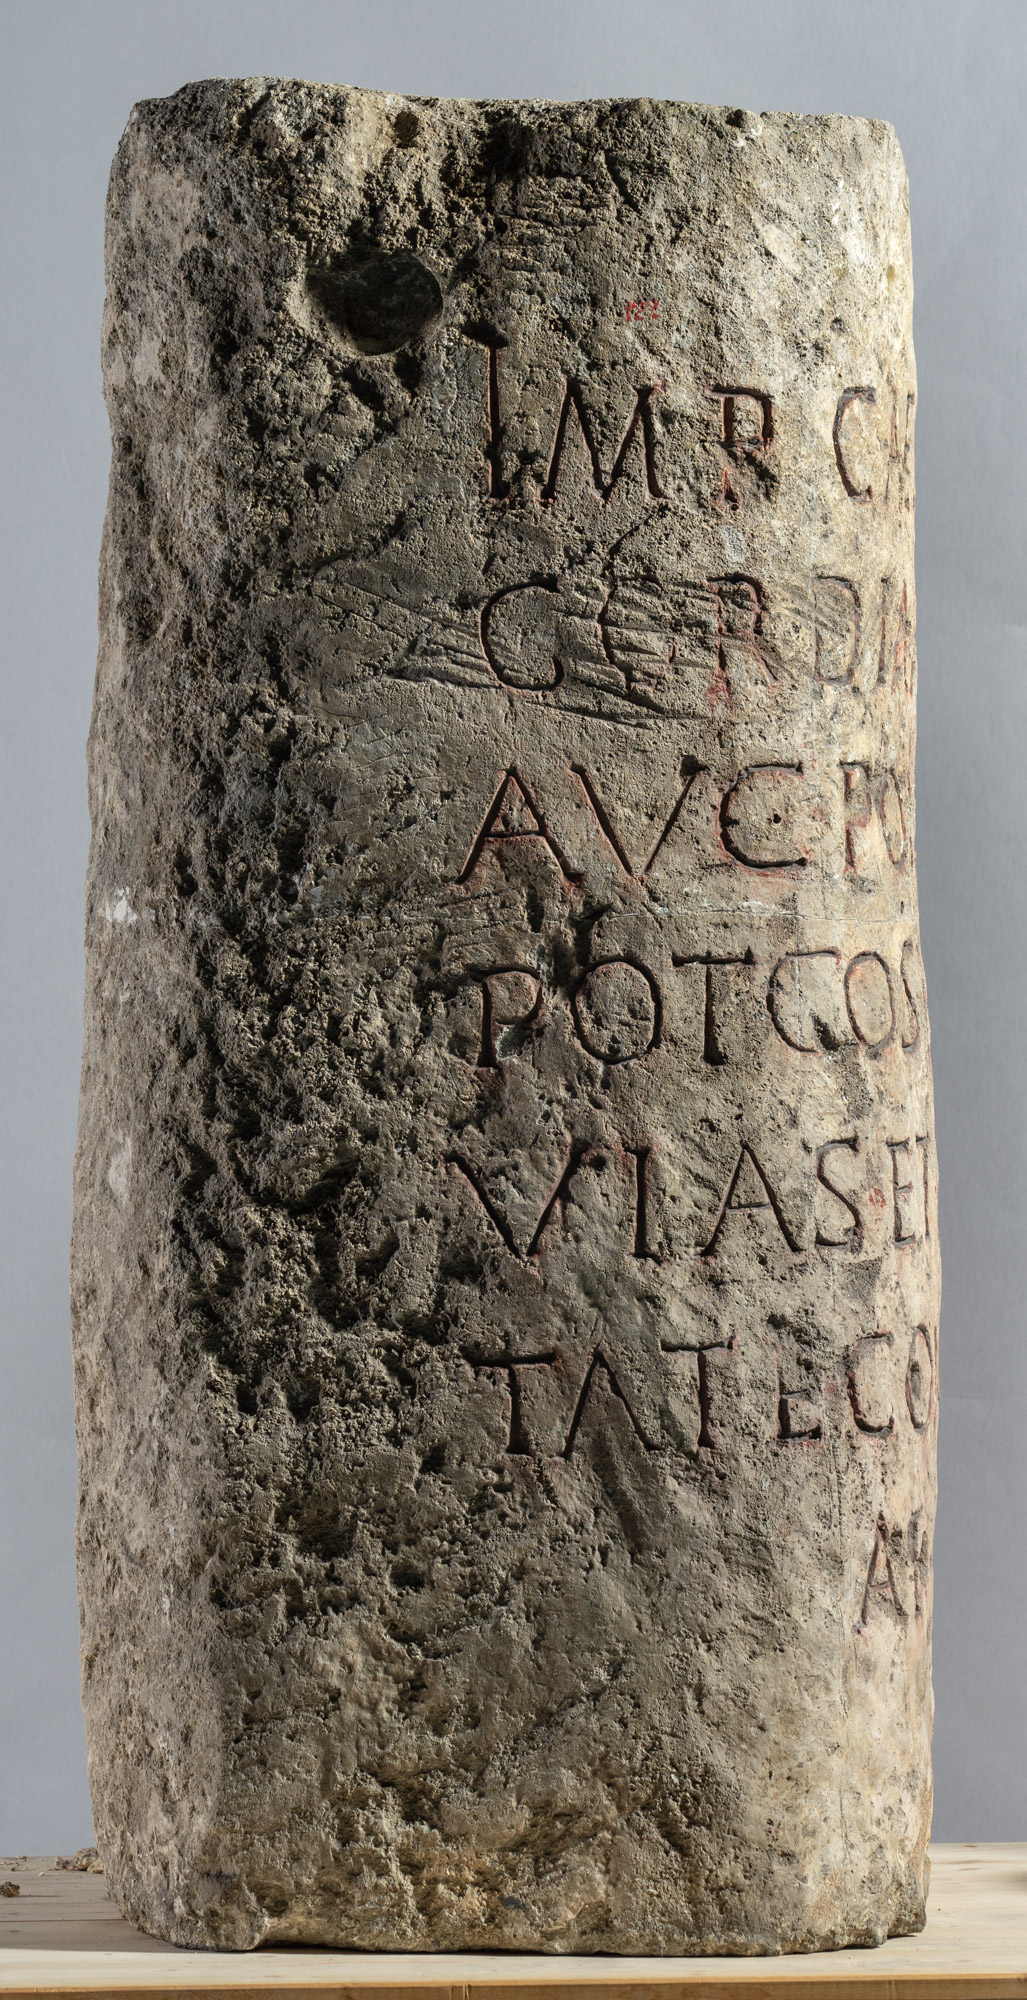 IMP CAE
GORDIA
AVG PO
POT COS
VIAS ET
TATE CO
AR